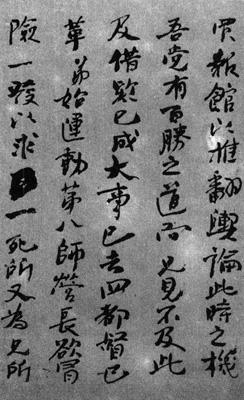 買報館以推翻輿論此時之機
吾党有百勝之道而兄見不及此
及借欵已成大事已去四都督已
革弟始運動第八師營長欲冒
險一發以求一死所又為兄所